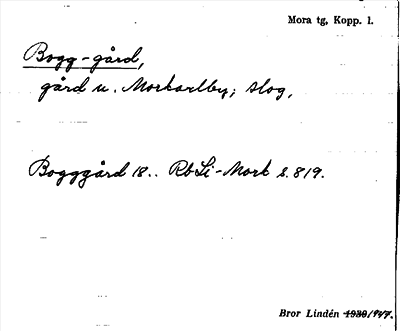 Mora tg, Kopp. l.
Bogg-gård,
gård u. Morkarlby; slog,
Bogggård 18.. RbLi-Mork s. 819.
Bror Lindén 1930/1947.